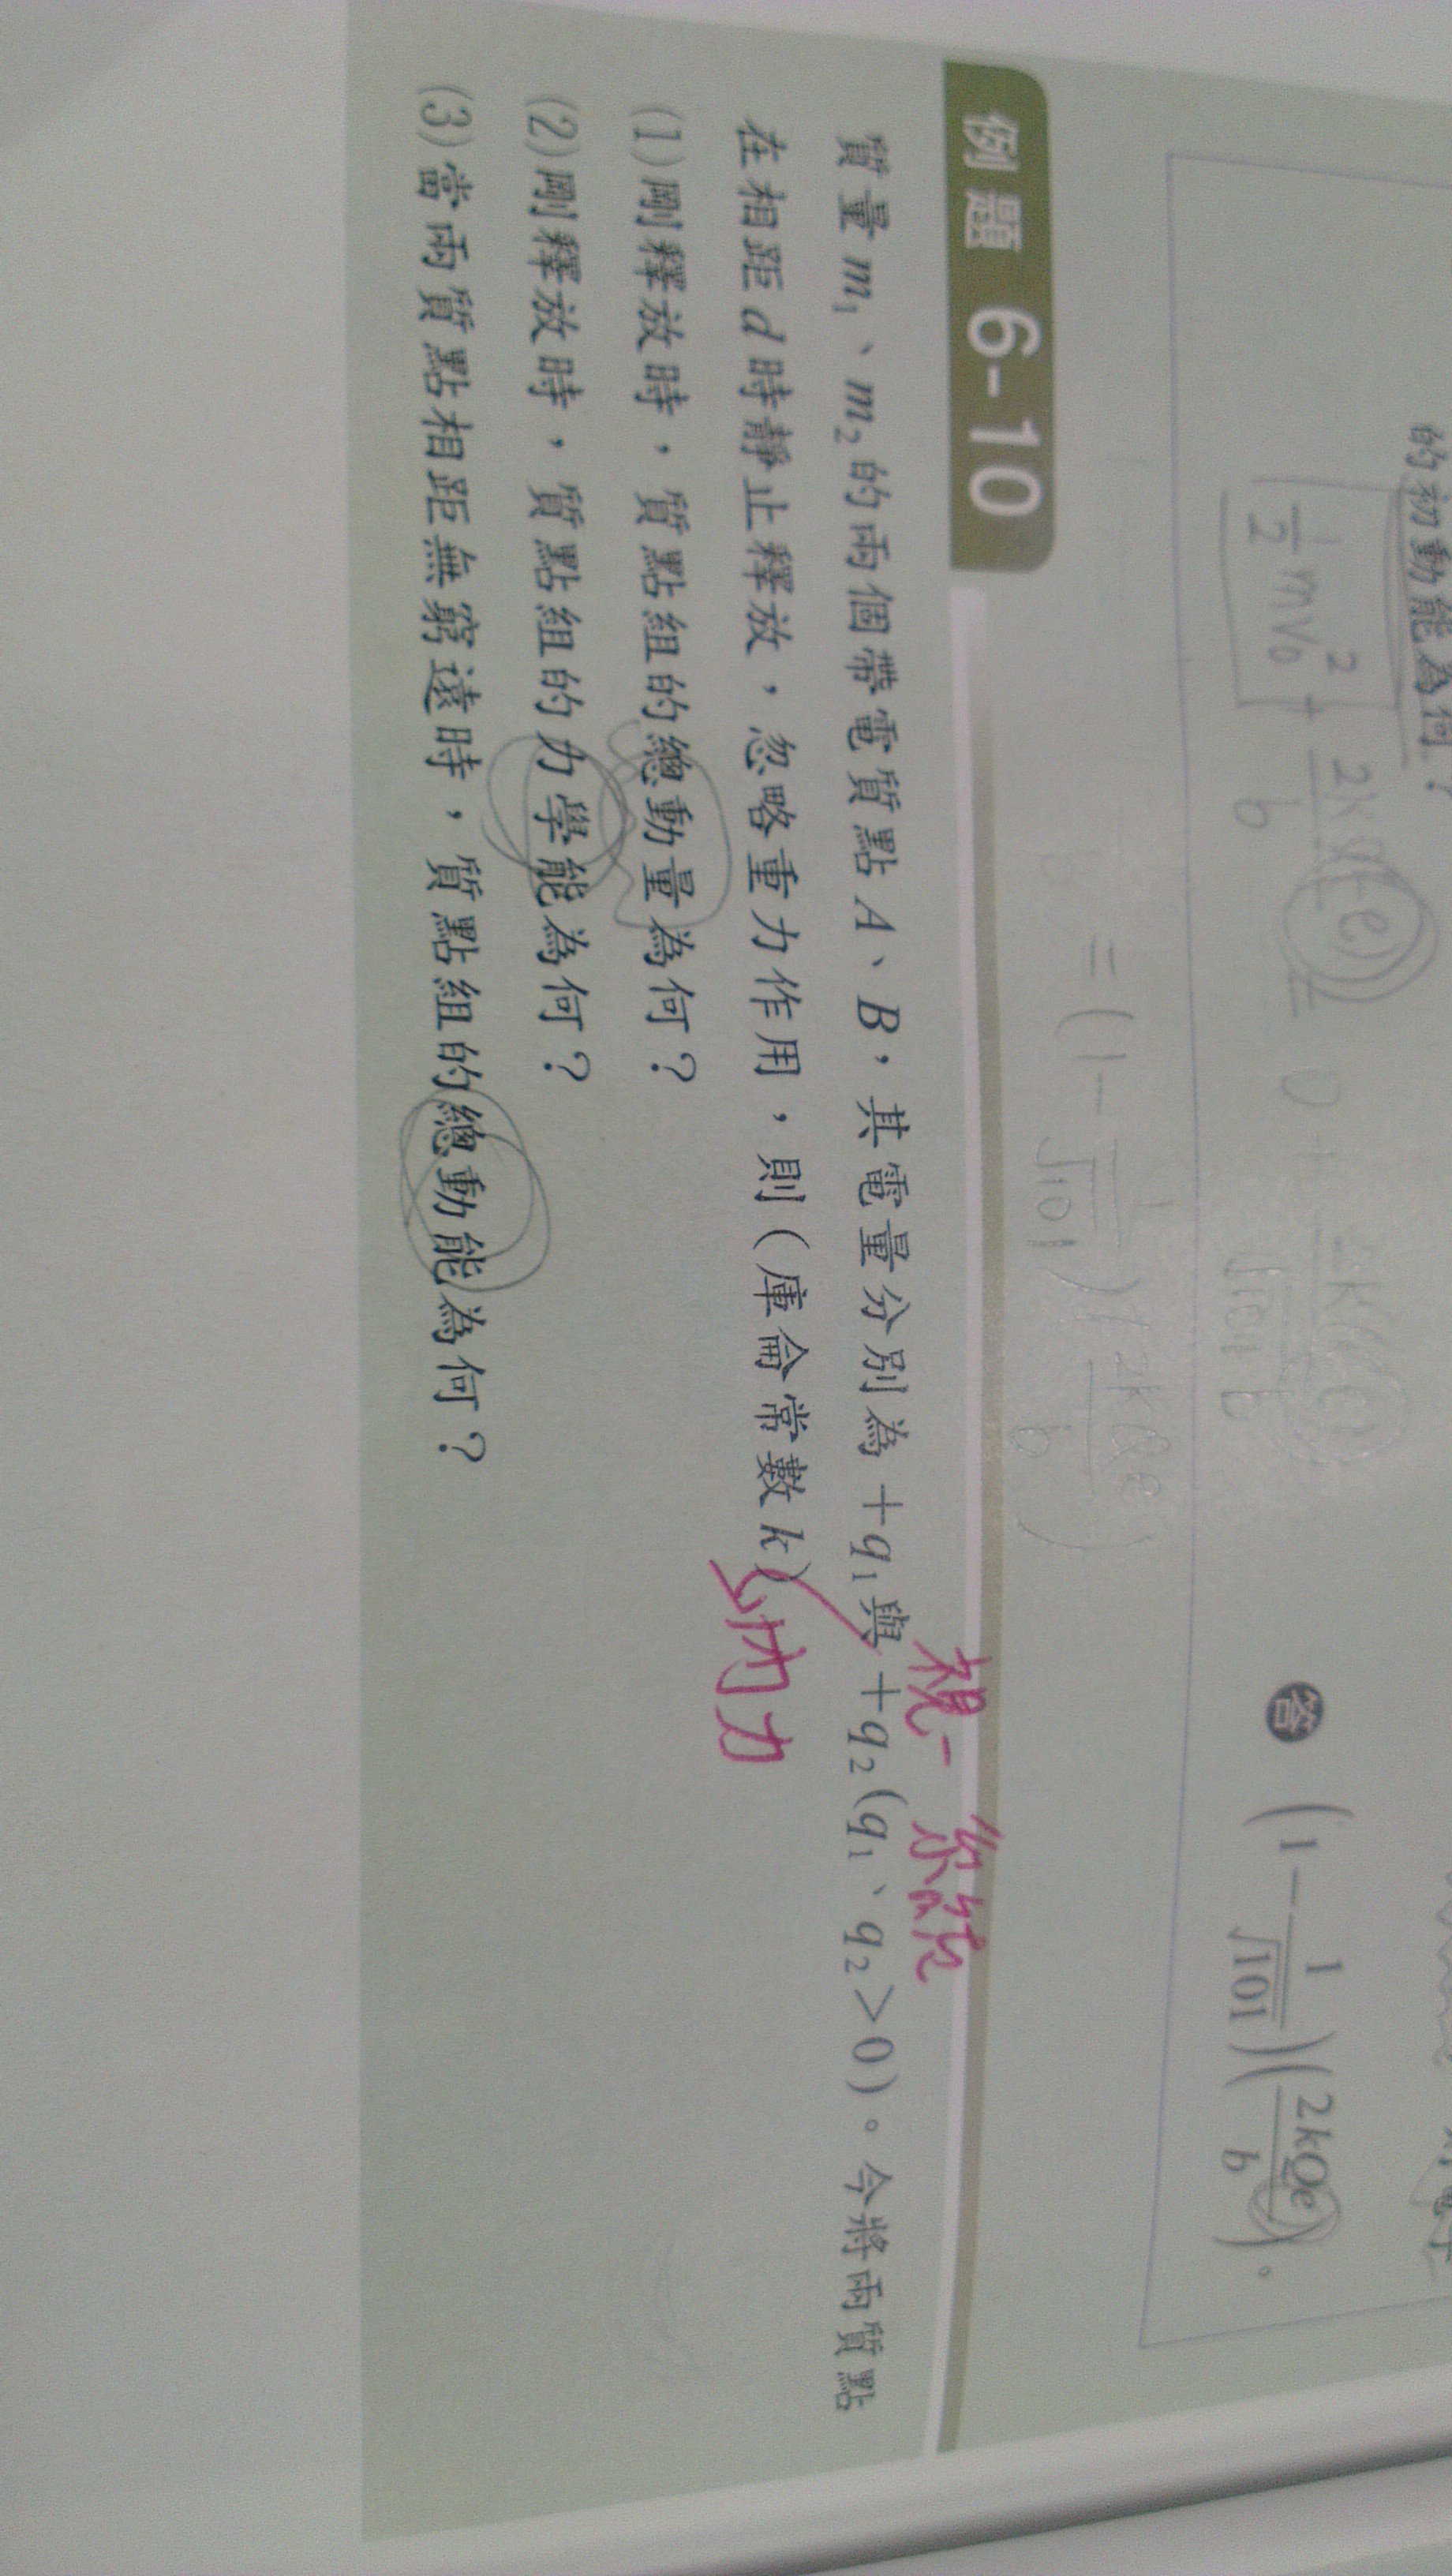 的初動能為何？
½mv₀² + 2kQ(-e)/b = 0 + -2kQe/√101 b
= (1-1/√101)(2kQe/b)
答 (1-1/√101)(2kQe/b)。
例題 6-10
視一系統
質量m₁、m₂的兩個帶電質點A、B，其電量分別為+q₁與+q₂(q₁、q₂>0)。今將兩質點
在相距d時靜止釋放，忽略重力作用，則(庫侖常數k)
內力
(1)剛釋放時，質點組的總動量為何？
(2)剛釋放時，質點組的力學能為何？
(3)當兩質點相距無窮遠時，質點組的總動能為何？